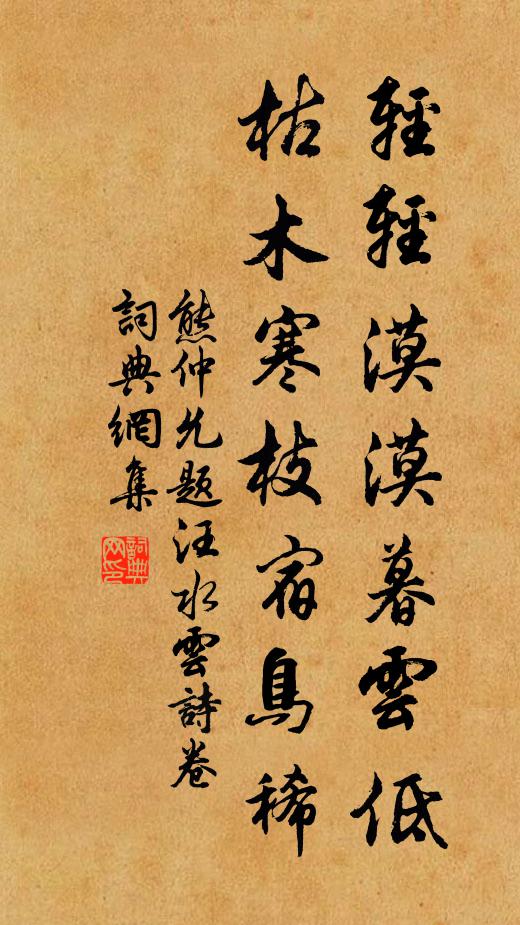 輕輕漠漠暮雲低
枯木寒枝宿鳥稀
熊仲允題汪水雲詩卷
詞典網集
詞典網印